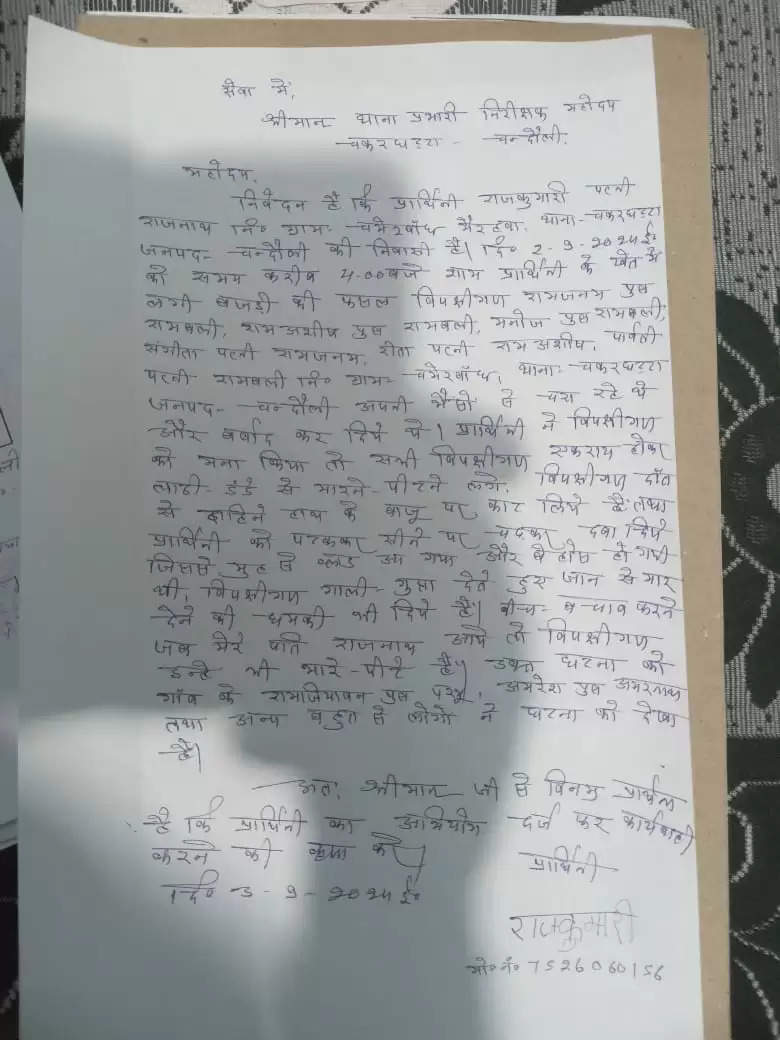 सेवा में,
श्रीमान थाना प्रभारी निरीक्षक महोदय
चकरघट्टा - चन्दौली.
महोदय,
निवेदन है कि प्रार्थिनी राजकुमारी पत्नी
राजनाथ नि० ग्राम- चमेरबाँध भैरहवा, थाना- चकरघट्टा
जनपद- चन्दौली की निवासी है। दि० 2-9-2024 ई०
को समय करीब 4.00 बजे शाम प्रार्थिनी के खेत में
लगी बाजड़ी की फसल विपक्षीगण रामजनम पुत्र
रामबली, रामआशीष पुत्र रामबली, मनोज पुत्र रामबली,
संगीता पत्नी रामजनम, रीता पत्नी राम अशीष, पार्वती
पत्नी रामबली नि० ग्राम- चमेरबाँध, थाना- चकरघट्टा
जनपद- चन्दौली अपनी भैसो से चरा रहे थे
और बर्बाद कर दिये थे। प्रार्थिनी ने विपक्षीगण
को मना किया तो सभी विपक्षीगण एकराय होकर
लाठी- डंडे से मारने-पीटने लगे, विपक्षीगण दाँत
से दाहिने हाथ के बाजू पर काट लिये है तथा
प्रार्थिनी को पटककर सीने पर चढ़कर दबा दिये
जिससे मुह से ब्लड आ गया और बेहोस हो गयी
थी, विपक्षीगण गाली- गुप्ता देते हुए जान से मार
देने की धमकी भी दिये है। बीच- बचाव करने
जब मेरे पति राजनाथ आये तो विपक्षीगण
इन्हे भी मारे-पीटे है। उक्त घटना को
गाँव के रामजियावन पुत्र, अमरेश पुत्र अमरनाथ
तथा अन्य बहुत से लोगो ने घटना को देखा
है।
अतः श्रीमान जी से विनम्र प्रार्थना
है कि प्रार्थिनी का अभियोग दर्ज कर कार्यवाही
करने की कृपा करें।
प्रार्थिनी
दि० 3-9-2024 ई०
राजकुमारी
मो० नं० 7526060156